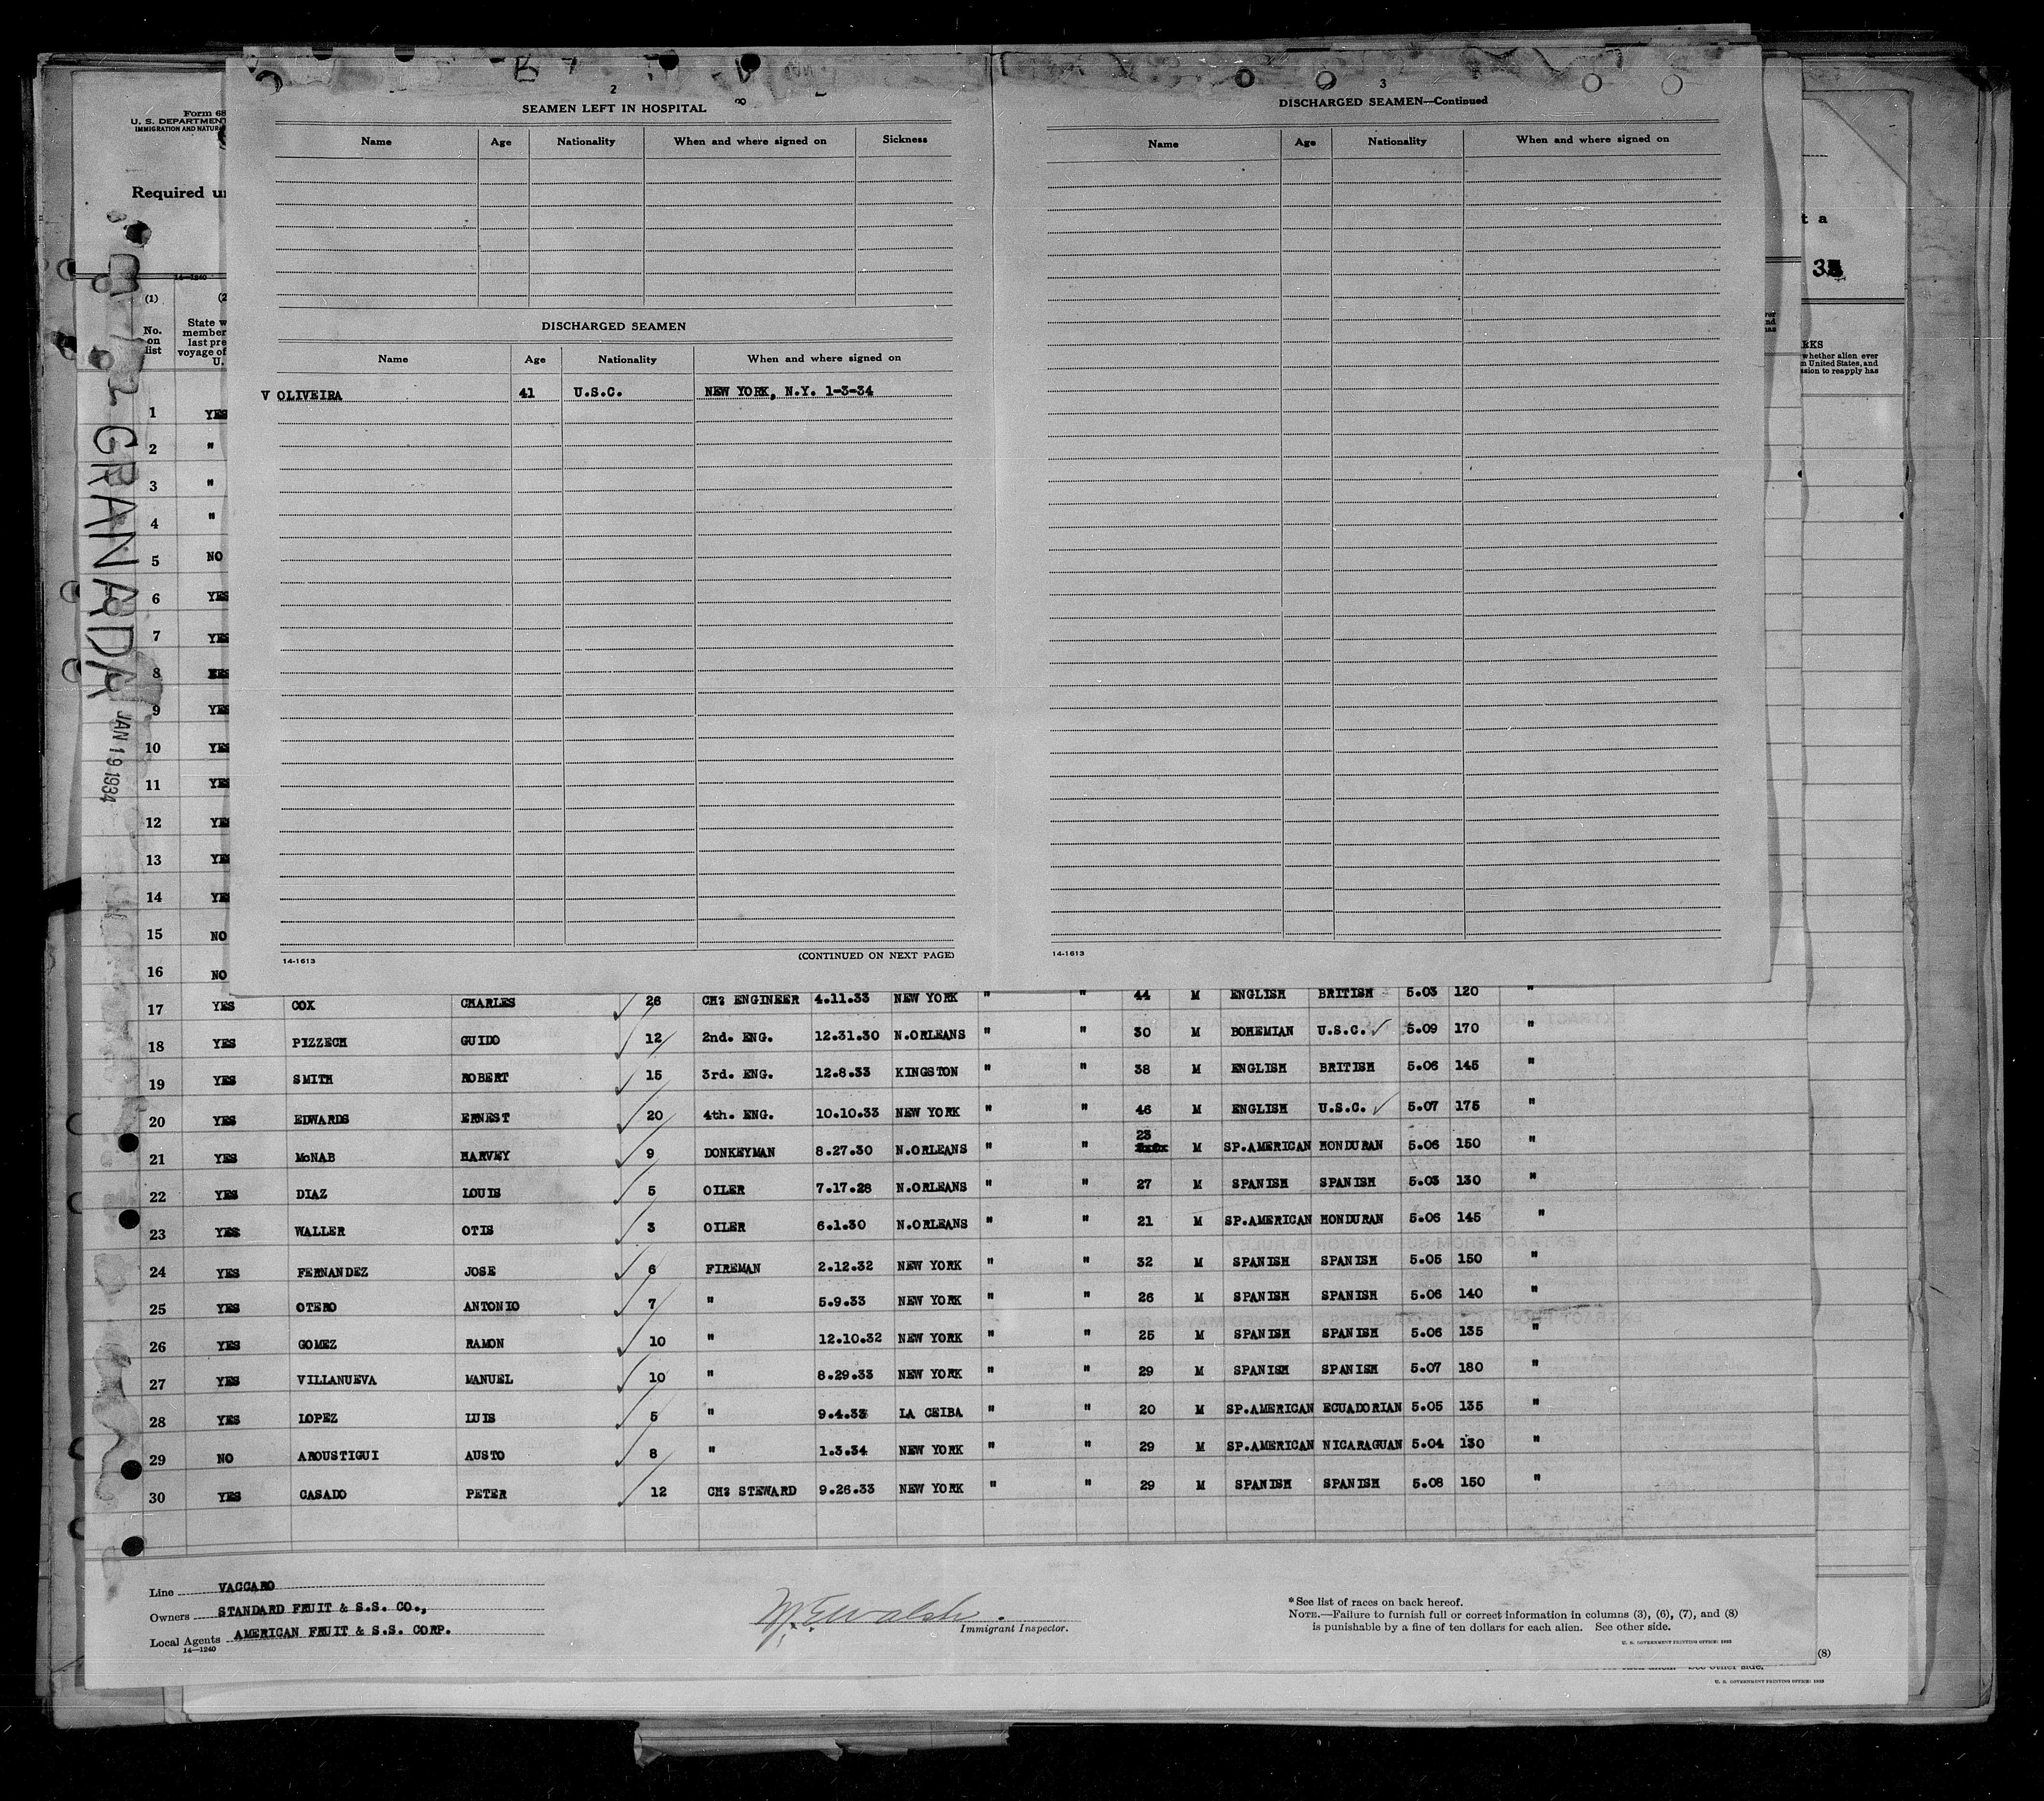 2
SEAMEN LEFT IN HOSPITAL
Name Age Nationality When and where signed on Sickness
DISCHARGED SEAMEN
Name Age Nationality When and where signed on
V OLIVEIRA 41 U.S.C. NEW YORK, N.Y. 1-3-34
14-1613 (CONTINUED ON NEXT PAGE)
3
DISCHARGED SEAMEN—Continued
Name Age Nationality When and where signed on
14-1613
Form 68
U. S. DEPARTMEN
IMMIGRATION AND NATUR
Required u
14—1240
(1) (2
No. on list
State w
member
last pre
voyage of
U.
t a
RKS
whether alien ever
United States, and
ssion to reapply has
GRANADA
JAN 19 1934
1 YES
2 "
3 "
4 "
5 NO
6 YES
7 YES
8 YES
9 YES
10 YES
11 YES
12 YES
13 YES
14 YES
15 NO
16 NO
17 YES COX CHARLES 26 CH? ENGINEER 4.11.33 NEW YORK " " 44 M ENGLISH BRITISH 5.03 120 "
18 YES PIZZECH GUIDO 12 2nd. ENG. 12.31.30 N.ORLEANS " " 30 M BOHEMIAN U.S.C. 5.09 170 "
19 YES SMITH ROBERT 15 3rd. ENG. 12.8.33 KINGSTON " " 38 M ENGLISH BRITISH 5.06 145 "
20 YES EDWARDS ERNEST 20 4th. ENG. 10.10.33 NEW YORK " " 46 M ENGLISH U.S.C. 5.07 175 "
21 YES McNAB HARVEY 9 DONKEYMAN 8.27.30 N.ORLEANS " " 23 M SP.AMERICAN HONDURAN 5.06 150 "
22 YES DIAZ LOUIS 5 OILER 7.17.28 N.ORLEANS " " 27 M SPANISH SPANISH 5.03 130 "
23 YES WALLER OTIS 3 OILER 6.1.30 N.ORLEANS " " 21 M SP.AMERICAN HONDURAN 5.06 145 "
24 YES FERNANDEZ JOSE 6 FIREMAN 2.12.32 NEW YORK " " 32 M SPANISH SPANISH 5.05 150 "
25 YES OTERO ANTONIO 7 " 5.9.33 NEW YORK " " 26 M SPANISH SPANISH 5.06 140 "
26 YES GOMEZ RAMON 10 " 12.10.32 NEW YORK " " 25 M SPANISH SPANISH 5.06 135 "
27 YES VILLANUEVA MANUEL 10 " 8.29.33 NEW YORK " " 29 M SPANISH SPANISH 5.07 180 "
28 YES LOPEZ LUIS 5 " 9.4.33 LA CEIBA " " 20 M SP.AMERICAN ECUADORIAN 5.05 135 "
29 NO AROUSTIGUI AUSTO 8 " 1.3.34 NEW YORK " " 29 M SP.AMERICAN NICARAGUAN 5.04 130 "
30 YES CASADO PETER 12 CH? STEWARD 9.26.33 NEW YORK " " 29 M SPANISH SPANISH 5.08 150 "
Line VACCARO
Owners STANDARD FRUIT & S.S. CO.,
Local Agents AMERICAN FRUIT & S.S. CORP.
14—1240
Immigrant Inspector.
*See list of races on back hereof.
NOTE.—Failure to furnish full or correct information in columns (3), (6), (7), and (8)
is punishable by a fine of ten dollars for each alien. See other side.
U. S. GOVERNMENT PRINTING OFFICE: 1932
(8)
U. S. GOVERNMENT PRINTING OFFICE: 1932